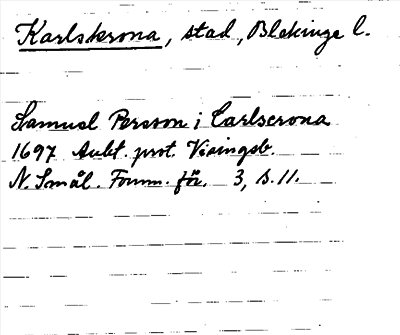 Karlskrona, stad, Blekinge l.
Samuel Persson i Carlscrona
1697 Aukt. prot. Visingsb.
N. Smål. Fornm.för. 3, s. 11.